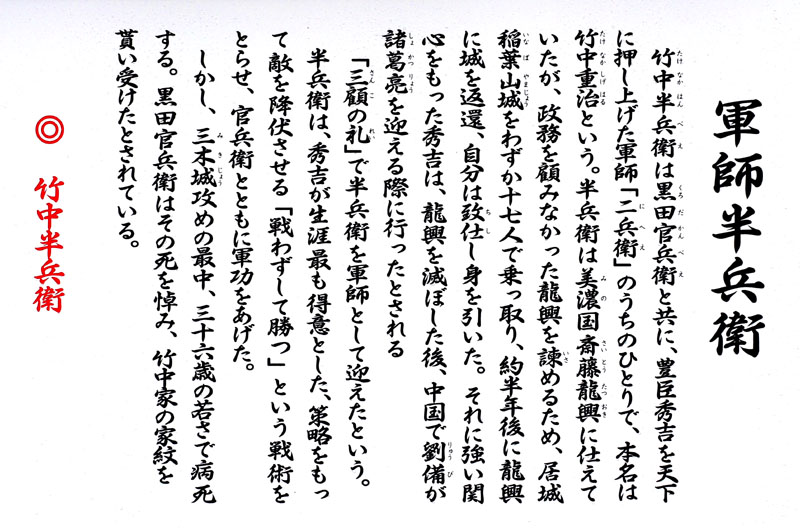 軍師半兵衛
竹中半兵衛は黒田官兵衛と共に、豊臣秀吉を天下
に押し上げた軍師「二兵衛」のうちのひとりで、本名は
竹中重治という。半兵衛は美濃国斎藤龍興に仕えて
いたが、政務を顧みなかった龍興を諫めるため、居城
稲葉山城をわずか十七人で乗っ取り、約半年後に龍興
に城を返還、自分は致仕し身を引いた。それに強い関
心をもった秀吉は、龍興を滅ぼした後、中国で劉備が
諸葛亮を迎える際に行ったとされる
「三顧の礼」で半兵衛を軍師として迎えたという。
半兵衛は、秀吉が生涯最も得意とした、策略をもっ
て敵を降伏させる「戦わずして勝つ」という戦術を
とらせ、官兵衛とともに軍功をあげた。
しかし、三木城攻めの最中、三十六歳の若さで病死
する。黒田官兵衛はその死を悼み、竹中家の家紋を
貰い受けたとされている。
◎ 竹中半兵衛